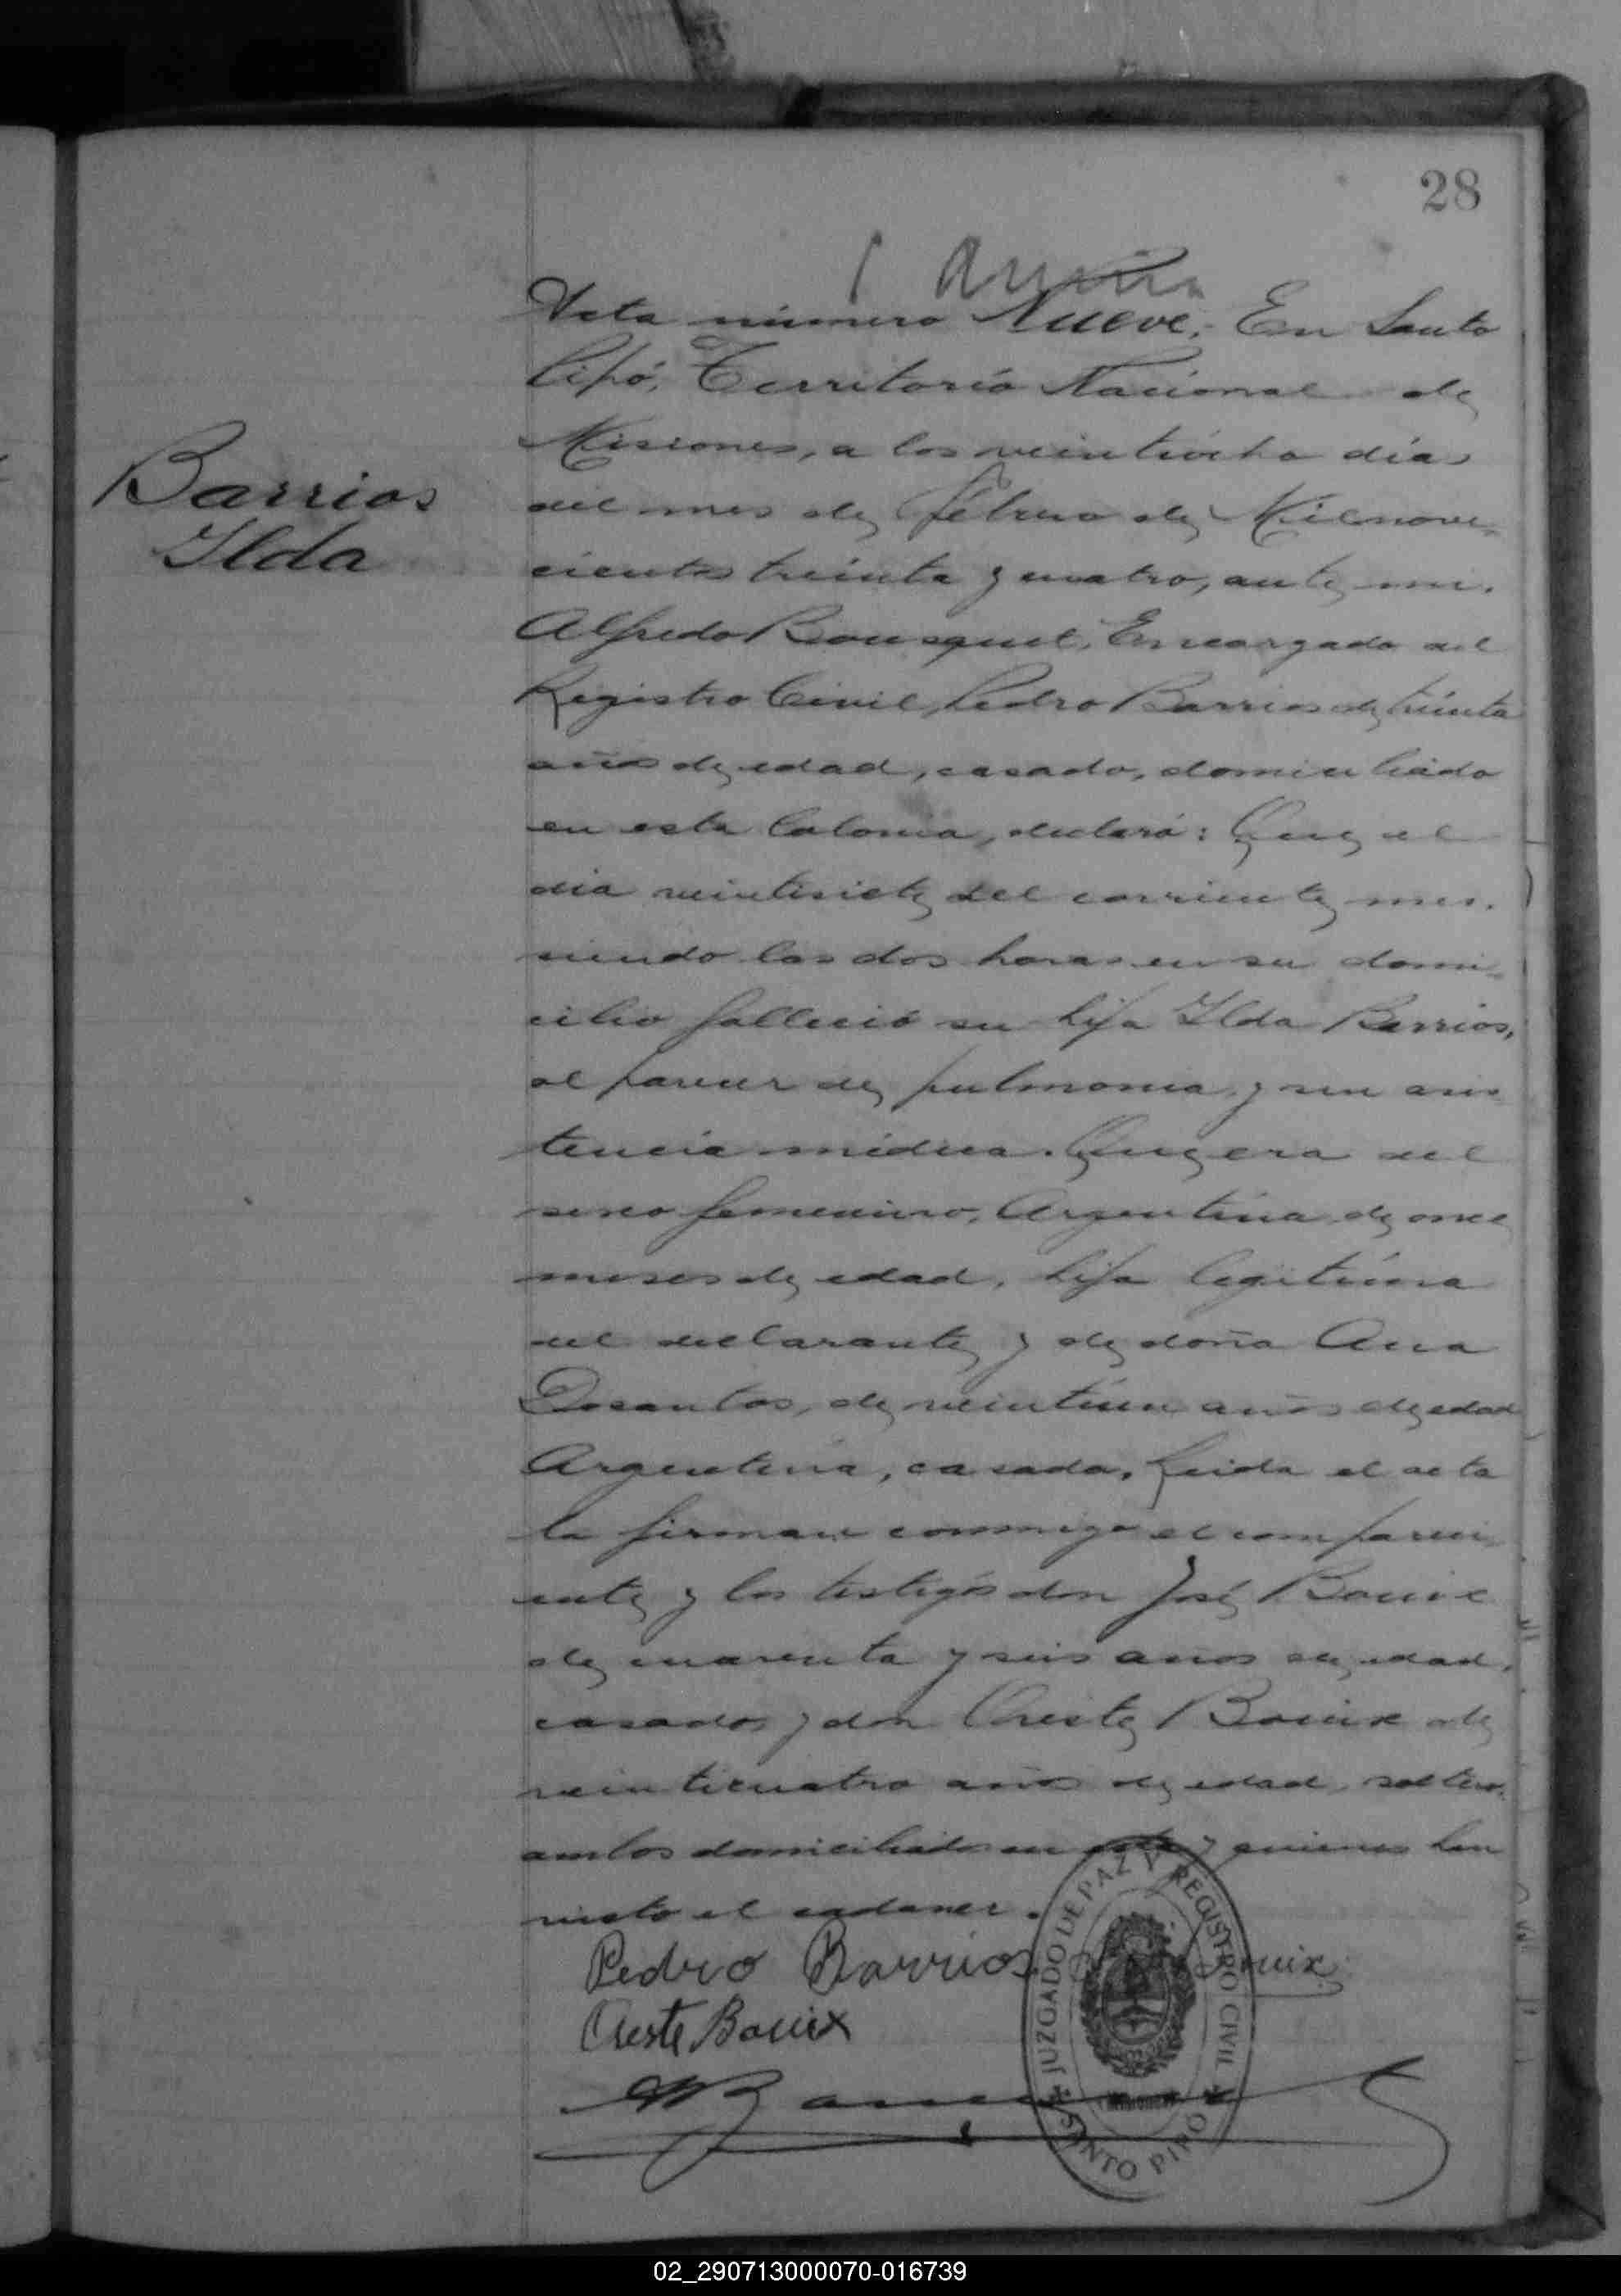 28
Acta número Nueve: En Santo
Pipó, Territorio Nacional de
Misiones, a los veintiocho días
del mes de febrero de Milnove-
cientos treinta y cuatro, ante mi.
Alfredo Bousquet, Encargado del
Registro Civil, Pedro Barrios de treinta
años de edad, casado, domiciliado
en esta Colonia, declaró: Que el
día veintisiete del corriente mes.
siendo las dos horas en su domi-
cilio falleció su hija Ilda Barrios,
al parecer de pulmonia y sin asis
tencia médica. Que era del
sexo femenino, Argentina, de once
meses de edad, hija legitima
del declarante y de doña Ana
Dosantos, de veintiún años de edad
Argentina, casada, Leida el acta
la firman conmigo el compareci-
ente y los testigos don José Bouix
de cuarenta y seis años de edad,
casado, y don Oreste Bouix de
veinticuatro años de edad, soltero,
ambos domiciliados en esta y quienes han
visto el cadaver.
Barrios
Ilda
Pedro Barrios. Bouix
Oreste Bouix
JUZGADO DE PAZ Y REGISTRO CIVIL
SANTO PIPÓ
02_290713000070-016739